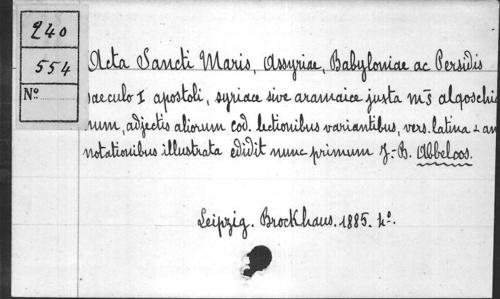 240
554
Nº
Acta Sancti Maris, Assyriae, Babyloniae ac Persidis
saeculo I apostoli, syriace sive aramaice juxta ms algoschia
num, adjectis aliorum cod. lectionibus variantibus, vers. latina & an
notationibus illustrata edidit nunc primum J.-B. Abbeloos.
Leipzig. Brockhaus. 1885. 4º.